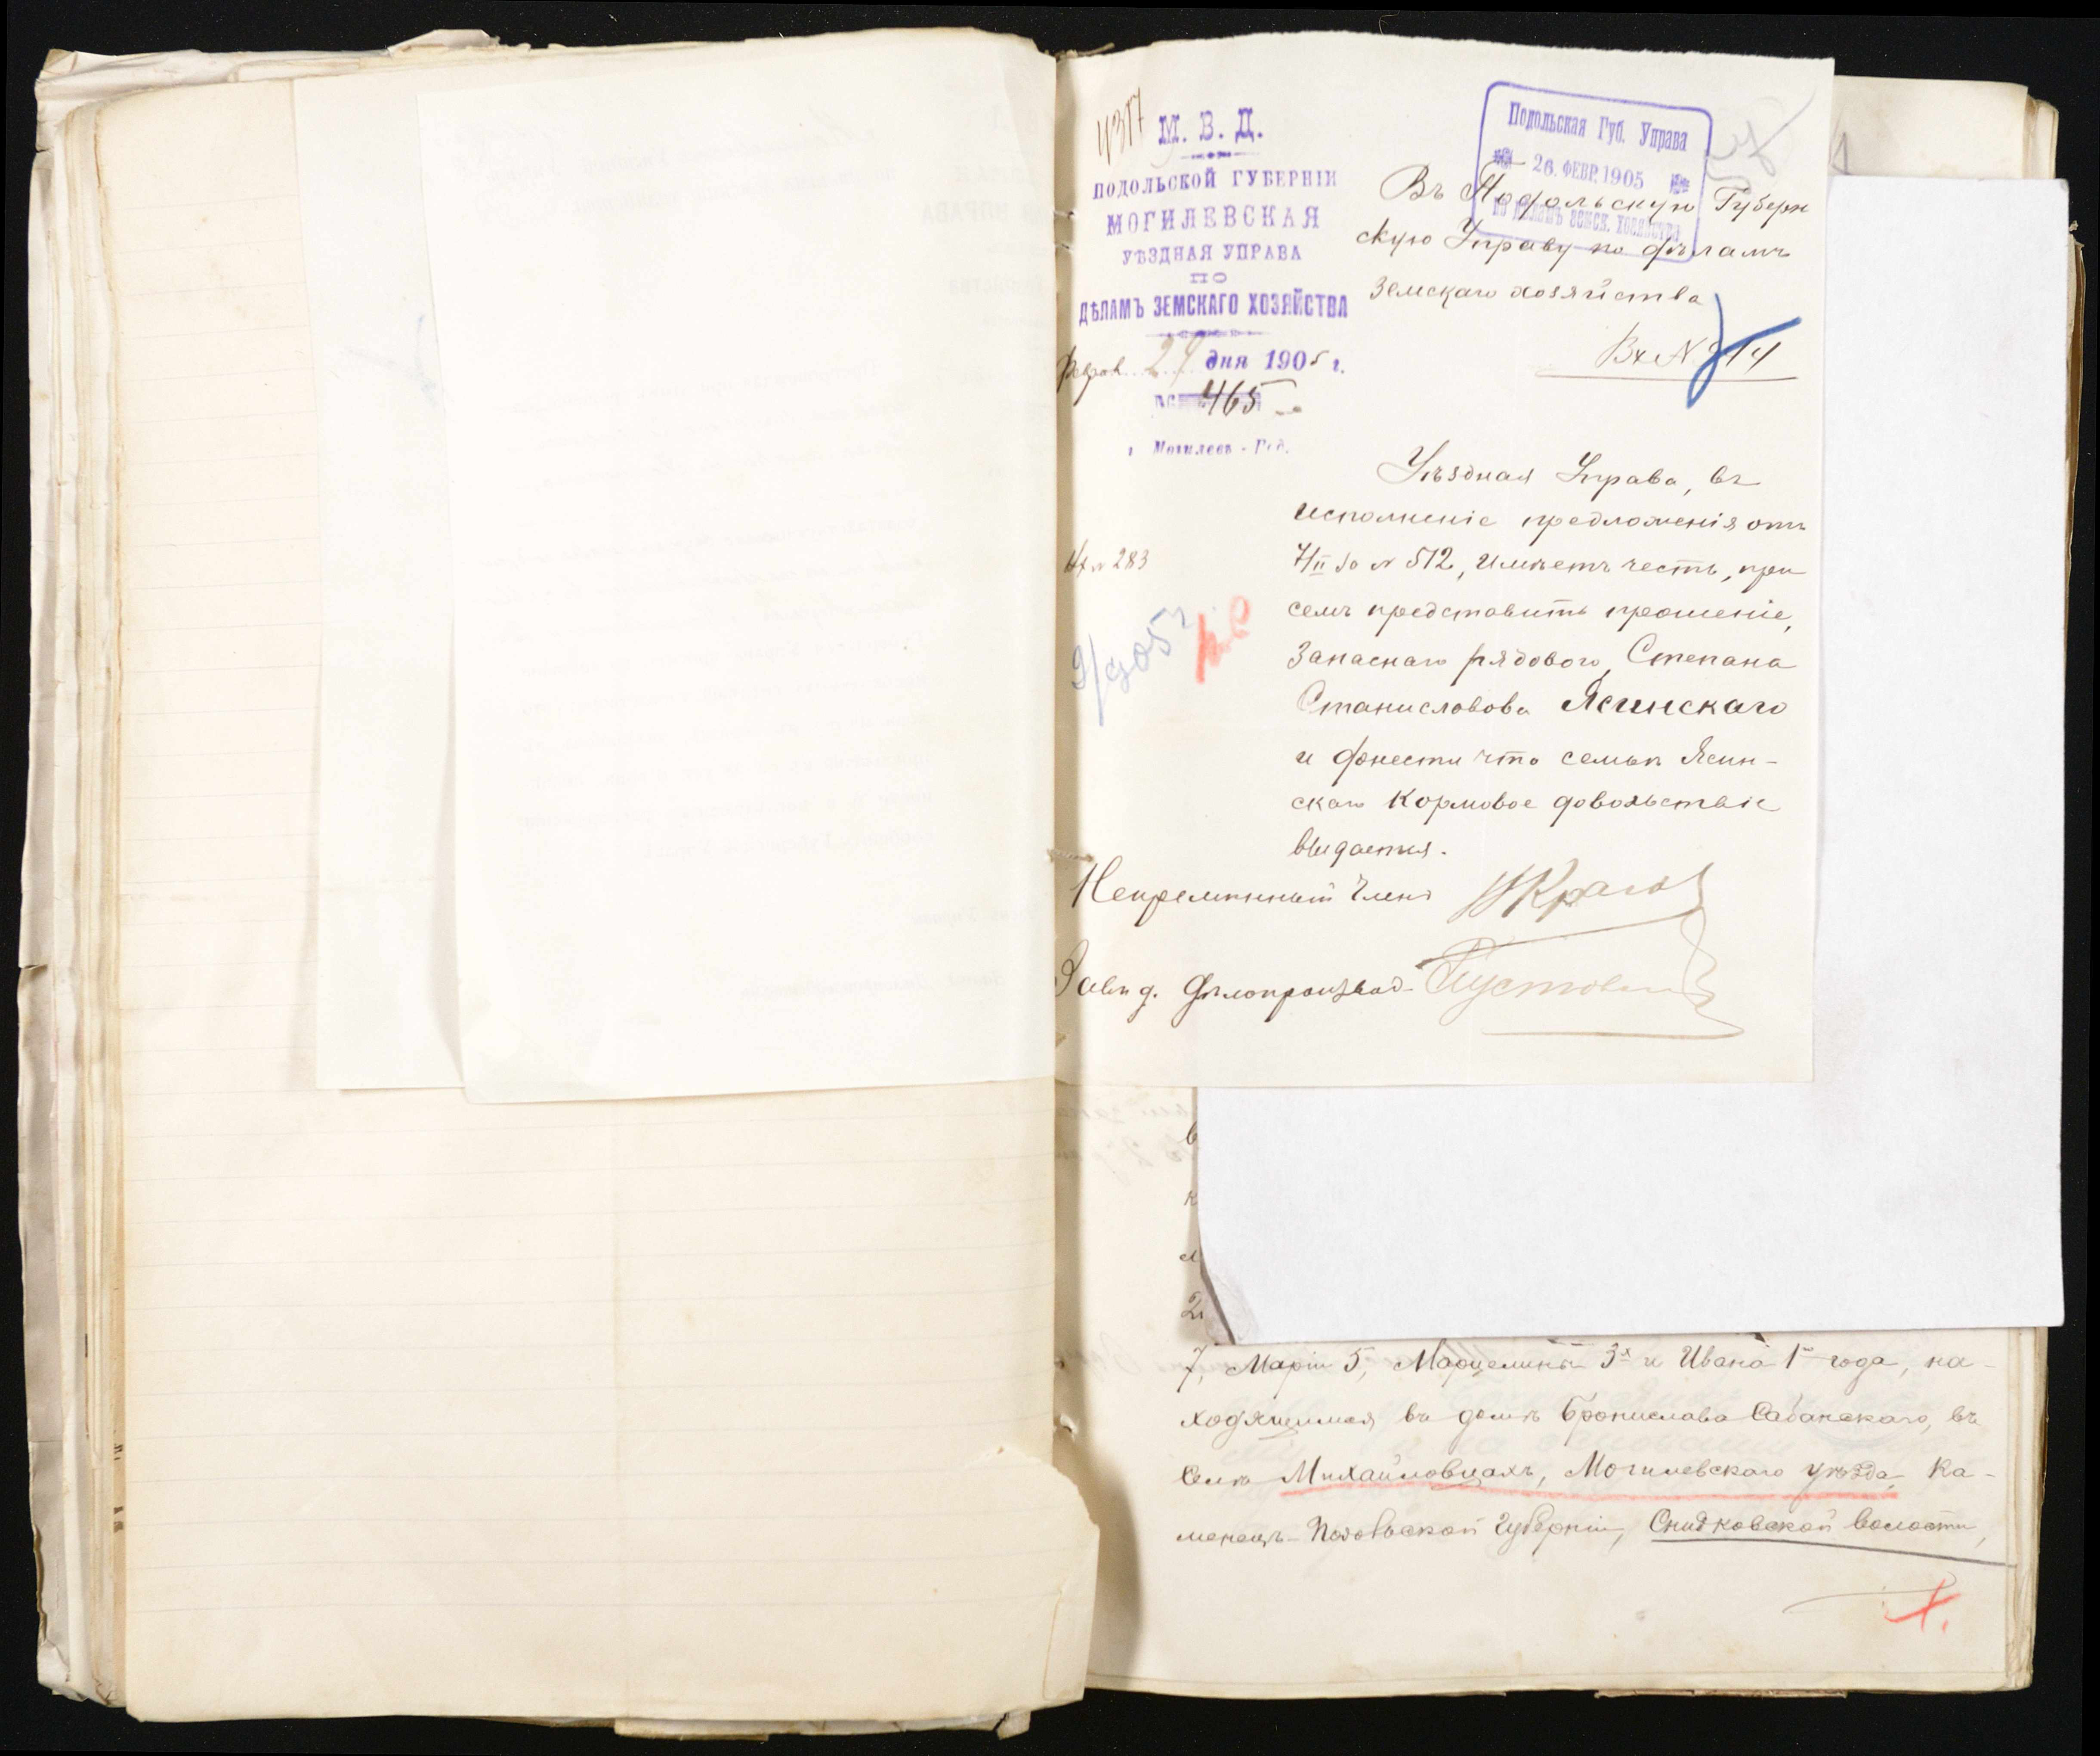 4317
М. В. Д.
ПОДОЛЬСКОЙ ГУБЕРНІИ
МОГИЛЕВСКАЯ
УѢЗДНАЯ УПРАВА
ПО
ДѢЛАМЪ ЗЕМСКАГО ХОЗЯЙСТВА
Феврал. 24 дня 1905 г.
№ 465
г. Могилевъ - Под.
Подольская Губ. Управа
26. ФЕВР. 1905
ПО ДѢЛАМЪ ЗЕМСК. ХОЗЯЙСТВА
Въ Подольскую Губерн
скую Управу по дѣламъ
Земскаго хозяйства
Вх N 314
Уѣздная Управа, въ
исполненіе предложенія отъ
7/II № 512, имѣетъ честь, при
семъ представить прошеніе,
запаснаго рядового, Степана
Станиславова Ясинскаго
и донести что семьѣ Ясин-
скаго кормовое довольствіе
выдается.
№ 283
Непремѣнный Членъ
Завѣд. Дѣлопроизвод.
7, Маріи 5, Марцелины 3х и Ивана 1 года, на-
ходящимся въ домѣ Бронислава Сабанскаго, въ
Селѣ Михайловцахъ, Могилевскаго уѣзда, Ка-
менецъ-Подольской Губерніи, Снидковской волости,